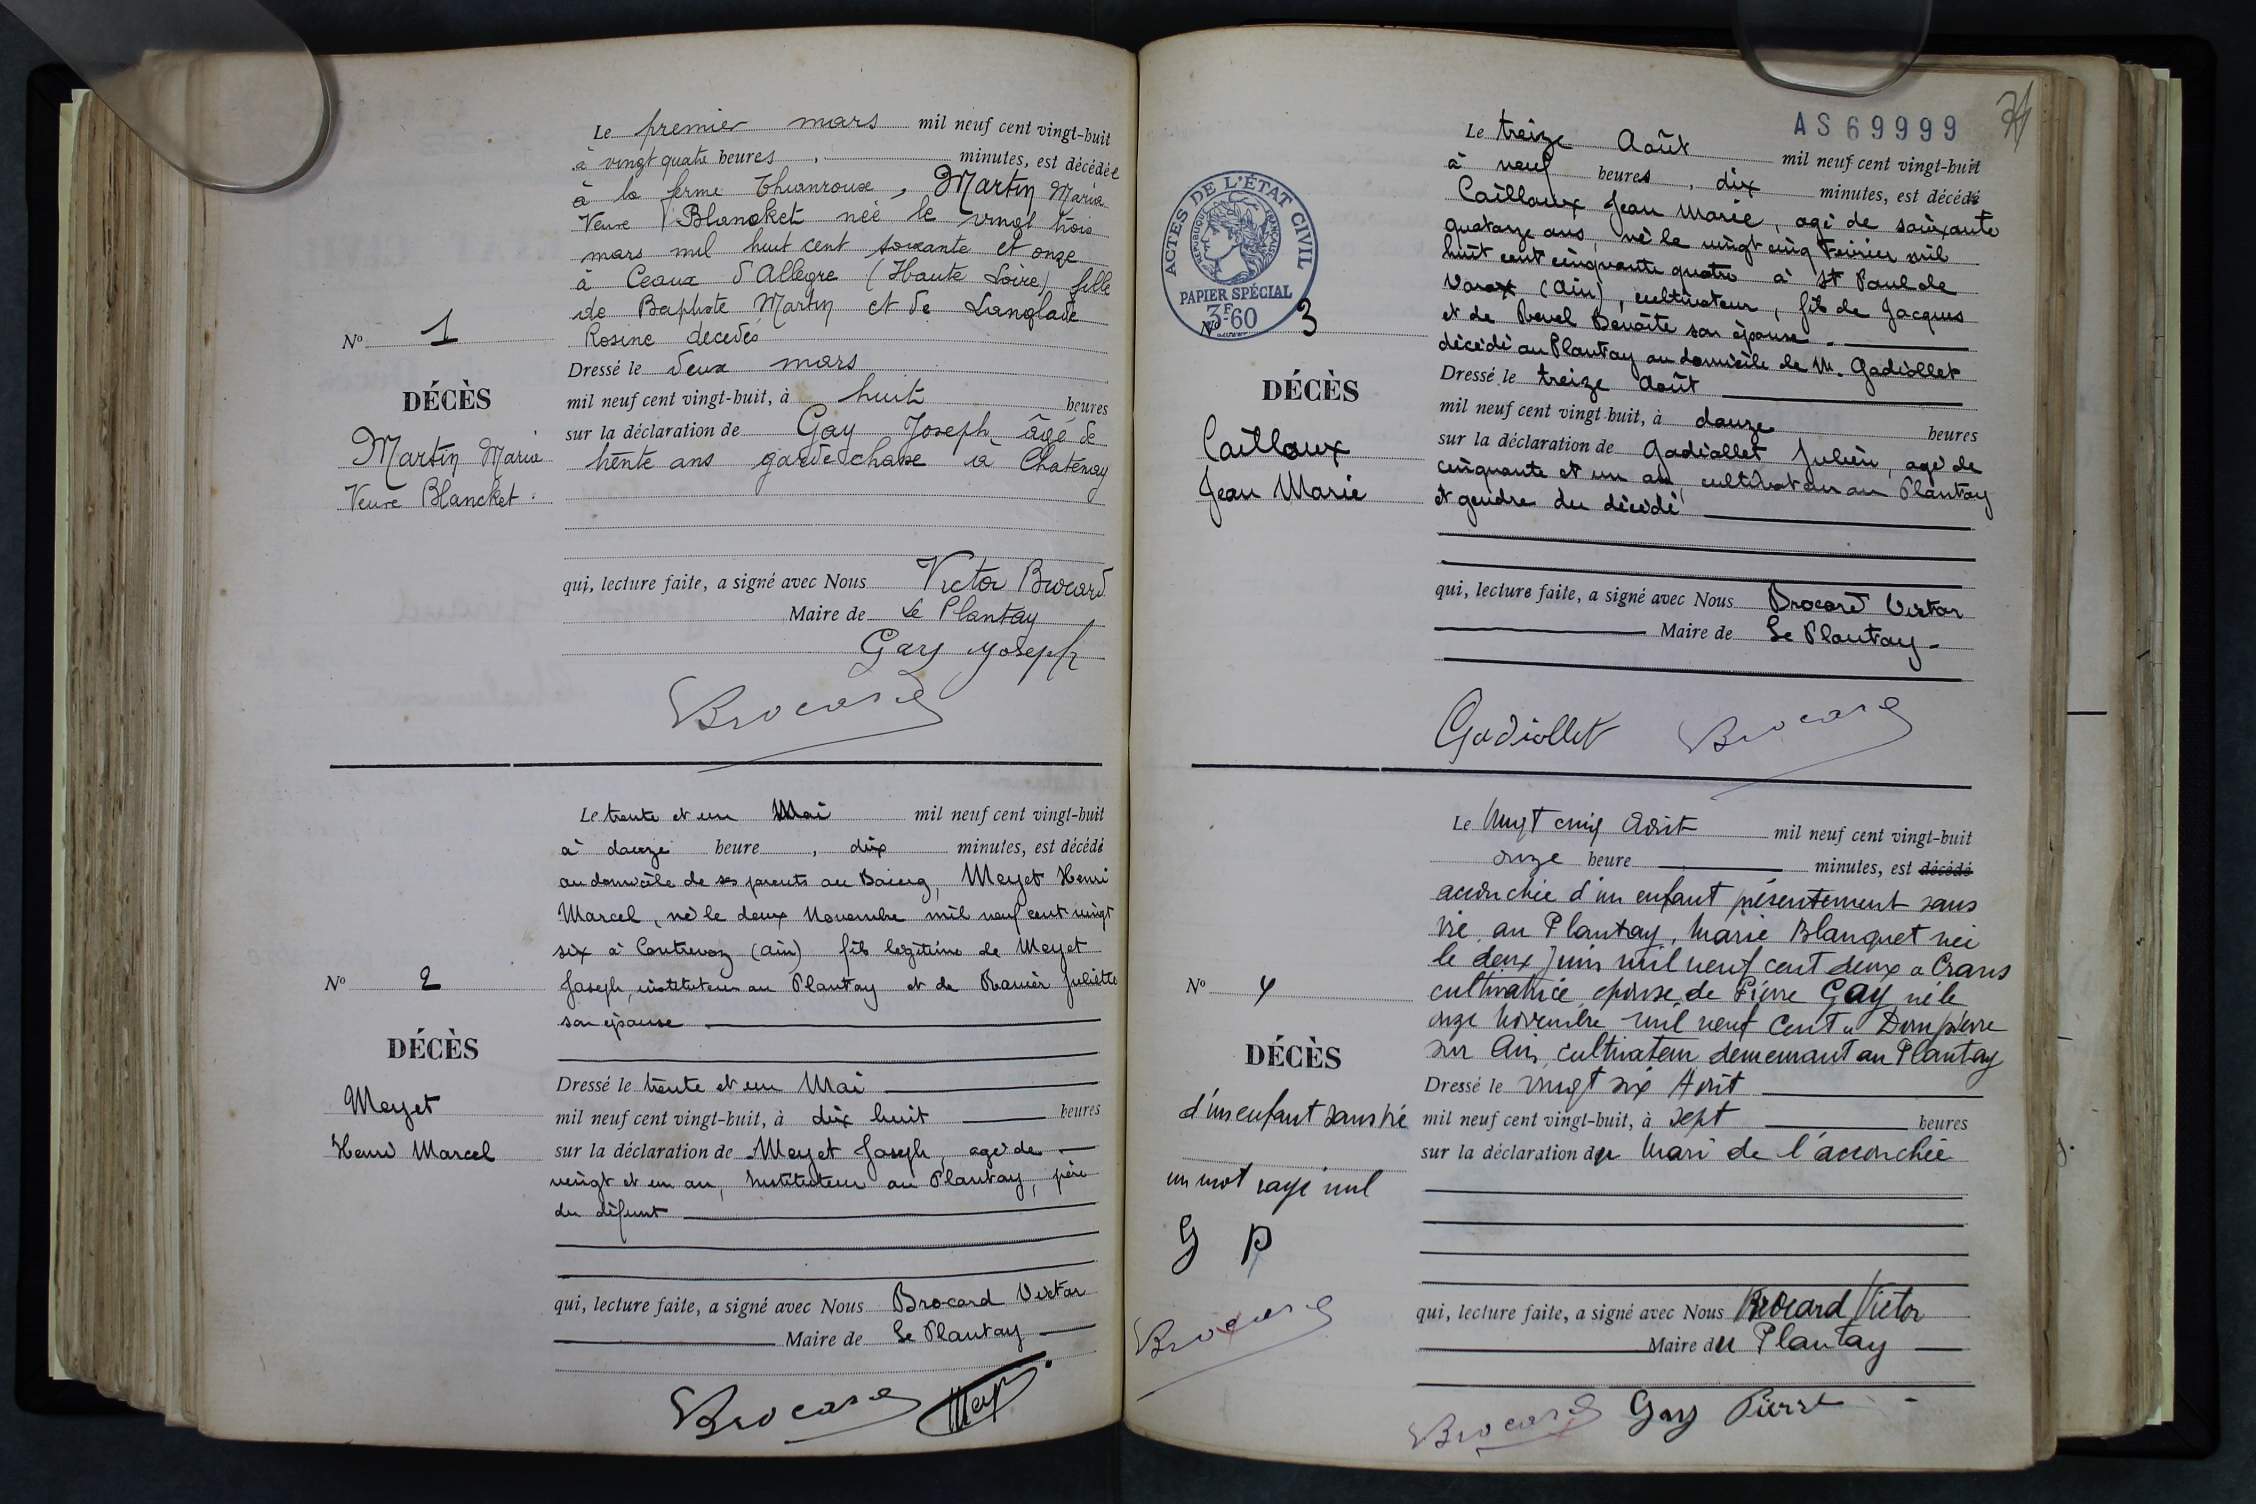 Le premier mars mil neuf cent vingt-huit
à vingt quatre heures , minutes, est décédée
à la ferme Thianroux, Martin Maria
Veuve Blancket née le vingt trois
mars mil huit cent soixante et onze
à Ceaux d'Allegre (Haute Loire) fille
de Baptiste Martin et de Langlade
Rosine décédés
Nº 1
DÉCÈS
Martin Maria
Veuve Blancket
Dressé le deux mars
mil neuf cent vingt-huit, à huit heures
sur la déclaration de Gay Joseph âgé de
trente ans garde chasse à Chatenay
qui, lecture faite, a signé avec Nous Victor Brocard
Maire de Le Plantay
Gay Joseph
Brocard
Le trente et un Mai mil neuf cent vingt-huit
à douze heure , dix minutes, est décédé
au domicile de ses parents au Bourg, Meyet Henri
Marcel, né le deux Novembre mil neuf cent vingt
six à Contrevoz (Ain) fils légitime de Meyet
Joseph, instituteur au Plantay et de Juliette
son épouse
Nº 2
DÉCÈS
Meyet
Henri Marcel
Dressé le trente et un Mai
mil neuf cent vingt-huit, à dix huit heures
sur la déclaration de Meyet Joseph, agé de
vingt et un an, Instituteur au Plantay, père
du défunt
qui, lecture faite, a signé avec Nous Brocard Victor
Maire de Le Plantay
Brocard Meyet
AS 69999
74
Le treize Août mil neuf cent vingt-huit
à neuf heures , dix minutes, est décédé
Cailloux Jean Marie, agé de soixante
quatorze ans, né le vingt cinq Février mil
huit cent cinquante quatre à St Paul de
Varax (Ain), cultivateur, fils de Jacques
et de Revel Benoite son épouse.
décédé au Plantay au domicile de M. Gadiollet
ACTES DE L'ÉTAT CIVIL
RÉPUBLIQUE FRANÇAISE
PAPIER SPÉCIAL
3F60
Nº 3
DÉCÈS
Cailloux
Jean Marie
Dressé le treize Août
mil neuf cent vingt-huit, à douze heures
sur la déclaration de Gadiollet Julien, agé de
cinquante et un an, cultivateur au Plantay
et gendre du décédé
qui, lecture faite, a signé avec Nous Brocard Victor
Maire de Le Plantay
Gadiollet Brocard
Le Vingt cinq Août mil neuf cent vingt-huit
onze heure minutes, est décédé
accouchée d'un enfant présentement sans
vie au Plantay, Marie Blanquet née
le deux Juin mil neuf cent deux a Crans
cultivatrice, épouse de Pierre Gay né le
onze Novembre mil neuf cent a Dompierre
sur Ain, cultivateur demeurant au Plantay
Nº 4
DÉCÈS
d'un enfant sans vie
Dressé le vingt six Août
mil neuf cent vingt-huit, à sept heures
sur la déclaration du Mari de l'accouchée
un mot rayé nul
G P
Brocard
qui, lecture faite, a signé avec Nous Brocard Victor
Maire du Plantay
Brocard Gay Pierre